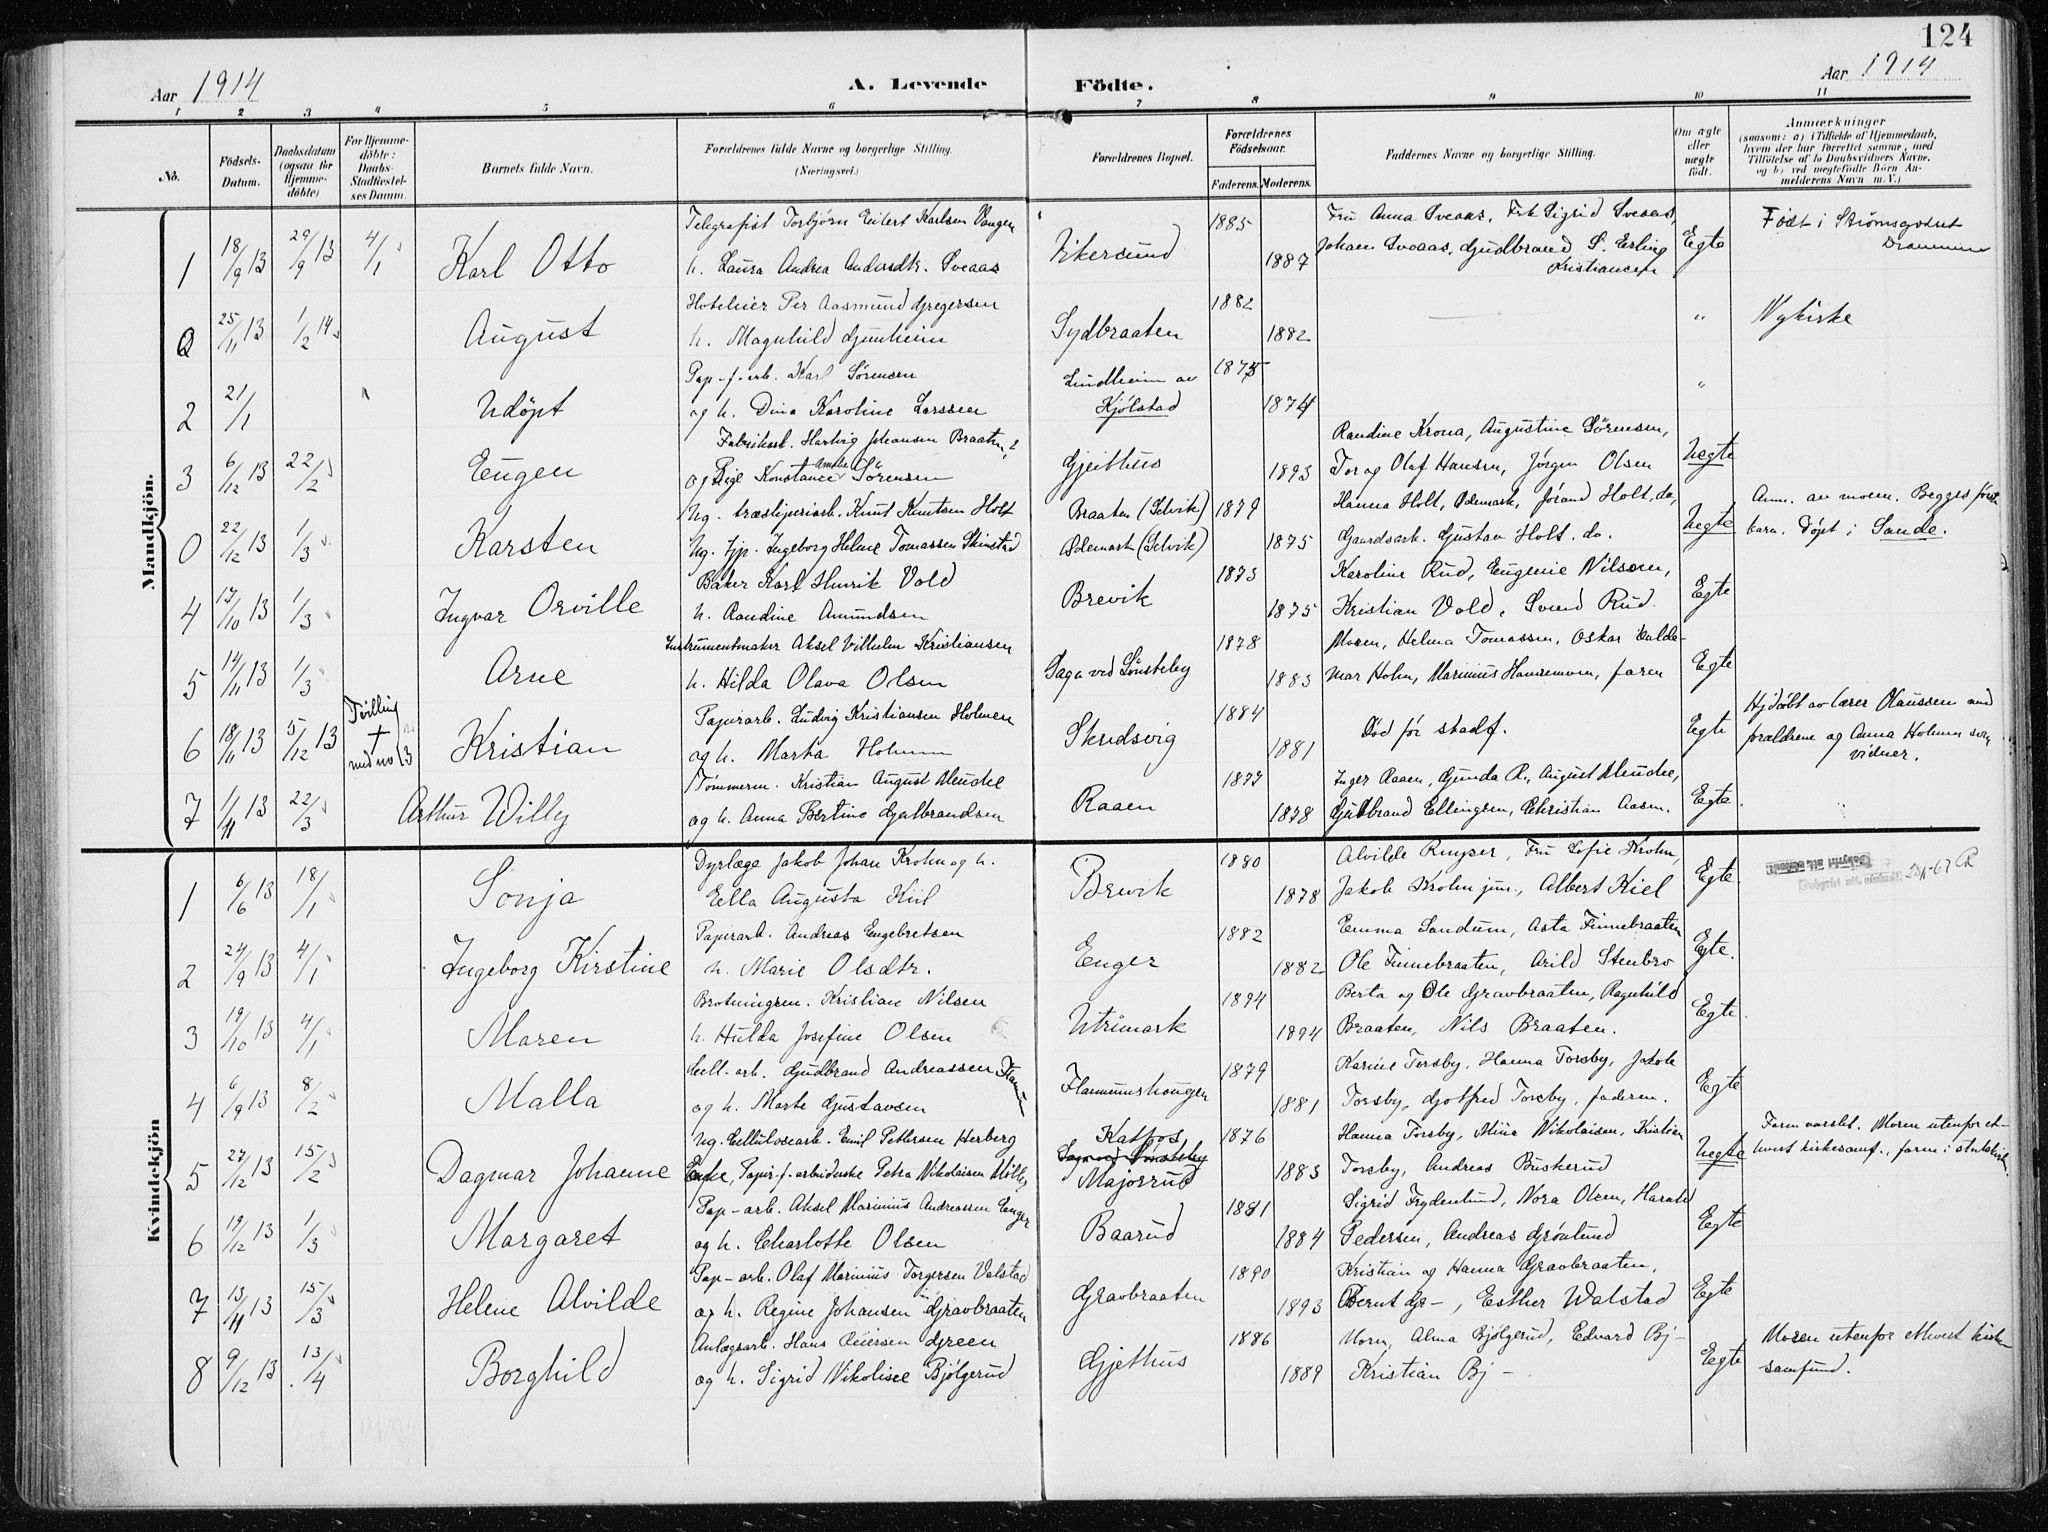 124
Aar 1914
A. Levende Födte.
Aar 1914
1 2 3 4 5 6 7 8 9 10 11
No.
Födsels-Datum.
Daabsdatum (ogsaa for Hjemmedöbte)
For Hjemmedöbte: Daabs-Stadfæstelses Datum.
Barnets fulde Navn.
Forældrenes fulde Navne og borgerlige Stilling. (Næringsvei.)
Forældrenes Bopæl.
Forældrenes Födselsaar.
Faderens. Moderens.
Faddernes Navne og borgerlige Stilling.
Om ægte eller uægte födt.
Anmærkninger
(saasom: a) i Tilfælde af Hjemmedaab, hvem der har forrettet samme, med Tilföielse af to Daabsvidners Navne, og b) ved uægtefödte Börn Anmelderens Navn m. V.)
Mandkjön.
Telegrafist Torbjørn Eilert Karlsen Vangen 1885 Fru Anna Sveaas, Frk Sigrid Sveaas, Født i Strømsgodset
1 18/9 13 29/9 13 4/1 Karl Otto h. Laura Andrea Andersdtr. Sveaas Ekersund 1887 Johan Sveaas, Gudbrand S. Erling Kristiansen Egte Drammen
Hoteleier Per Aasmund Gregersen 1882
2 25/11 13 1/2 14 August h. Magnhild Gunheim Sydbraaten 1882 " Nykirke
Pap-f-arb. Karl Sørensen Lindheim av 1875
2 21/1 Udöpt og h. Dina Karoline Larssen Kjølstad 1874 "
Fabrikarb. Hartvig Johansen Braaten, Randine Krona, Augustine Sørensen,
3 6/12 13 22/2 Eugen og Pige Konstance Amalie Sørensen Gjeithus 1893 Tor og Olaf Hansen, Jørgen Olsen Uegte
Ug. træsliperiarb. Knut Knutsen Holt Braaten (Selvik) 1879 Hanna Holt, Ødemark, Jørand Holt, do, Anm. av moren. Begges første
0 22/12 13 1/3 Karsten Ug. tjp. Ingeborg Helene Tomassen Skinstad Ødemark (Selvik) 1875 Gaardsarb. Gustav Holt. do. Uegte barn. Døpt i Sande.
Baker Karl Henrik Vold 1873 Karoline Rud, Eugenie Nilsen,
4 17/10 13 1/3 Ingvar Orville h. Randine Amundsen Brevik 1875 Kristian Vold, Svend Rud. Egte
Instrumentmaker Aksel Vilhelm Kristiansen 1878 Moren, Helma Tomassen, Oskar Valde-
5 14/11 13 1/3 Arne h. Hilda Olava Olsen Saga ved Sønsteby 1883 mar Holm, Marinius Hansemoen, faren Egte
Tvilling † med no 13
Papirarb. Ludvig Kristiansen Holmen 1884 Hj døbt av lærer Klaussen med
6 18/11 13 5/12 13 Kristian og h. Marta Holmen Skredsvig 1881 Død før stadf. Egte forældrene og Anna Holmen som vidner.
Tømmerm. Kristian August Meuche 1877 Inger Raaen, Gunda R., August Meuche,
7 1/11 13 22/3 Arthur Willy og h. Anna Bertine Gulbrandsen Raaen 1878 Gudbrand Ellingsen, Christian Aasen. Egte
Kvindekjön
Dyrlæge Jakob Johan Krohn og h. 1880 Alvilde Rmyser, Fru Sofie Krohn,
1 6/6 13 18/1 Sonja Ella Augusta Kiil Brevik 1878 Jakob Krohn jun., Albert Kiel Egte
Papirarb. Andreas Engebretsen 1882 Emma Sandum, Asta Finnebraaten
2 24/9 13 4/1 Ingeborg Kirstine h. Marie Olsdtr. Enger 1882 Ole Finnebraaten, Arild Stenbro Egte.
Brotningsm. Kristian Nilsen 1894 Berta og Ole Gravbraaten, Ragnhild
3 19/10 13 4/1 Maren h. Hulda Josefine Olsen Utrimark 1894 Braaten, Nils Braaten. Egte
Cell-arb. Gudbrand Andreassen Flannum 1879 Karine Torsby, Hanna Torsby, Jakob
4 6/9 13 8/2 Malla og h. Marte Gustavsen Flannumshaugen 1881 Torsby, Gotfred Torsby, faderen. Egte
Ug. Cellulosearb. Emil Pettersen Herberg Katfos 1876 Hanna Torsby, Mina Nikolaisen, Kristian Faren varslet. Moren utenfor et-
5 27/12 13 15/2 Dagmar Johanne Enke, Papir-f-arbeiderske Petra Nikolaisen Saga ved Sønsteby Majorrud 1883 Torsby, Andreas Buskerud Uegte hvert kirkesamf., faren i statskirken
Pap-arb. Aksel Marinius Andreassen Enger 1881 Sigrid Frydenlund, Nora Olsen, Harald
6 19/12 13 1/3 Margaret og h. Charlotte Olsen Baarud 1884 Pedersen, Andreas Grønlund Egte
Pap-arb. Olaf Marinius Torgersen Valstad 1890 Kristian og Hanna Gravbraaten,
7 13/11 13 15/3 Helene Alvilde og h. Regine Johansen Gravbraaten Gravbraaten 1893 Bernt Gr-, Esther Walstad Egte
Anlægsarb. Hans Peiersen Green 1886 Morn, Alma Bjølgerud, Edvard Bj- Moren utenfor ethvert kirke-
8 9/12 13 13/4 Borghild og h. Sigrid Nikolisee Bjølgerud Gjethus 1889 Kristian Bj- Egte samfund.